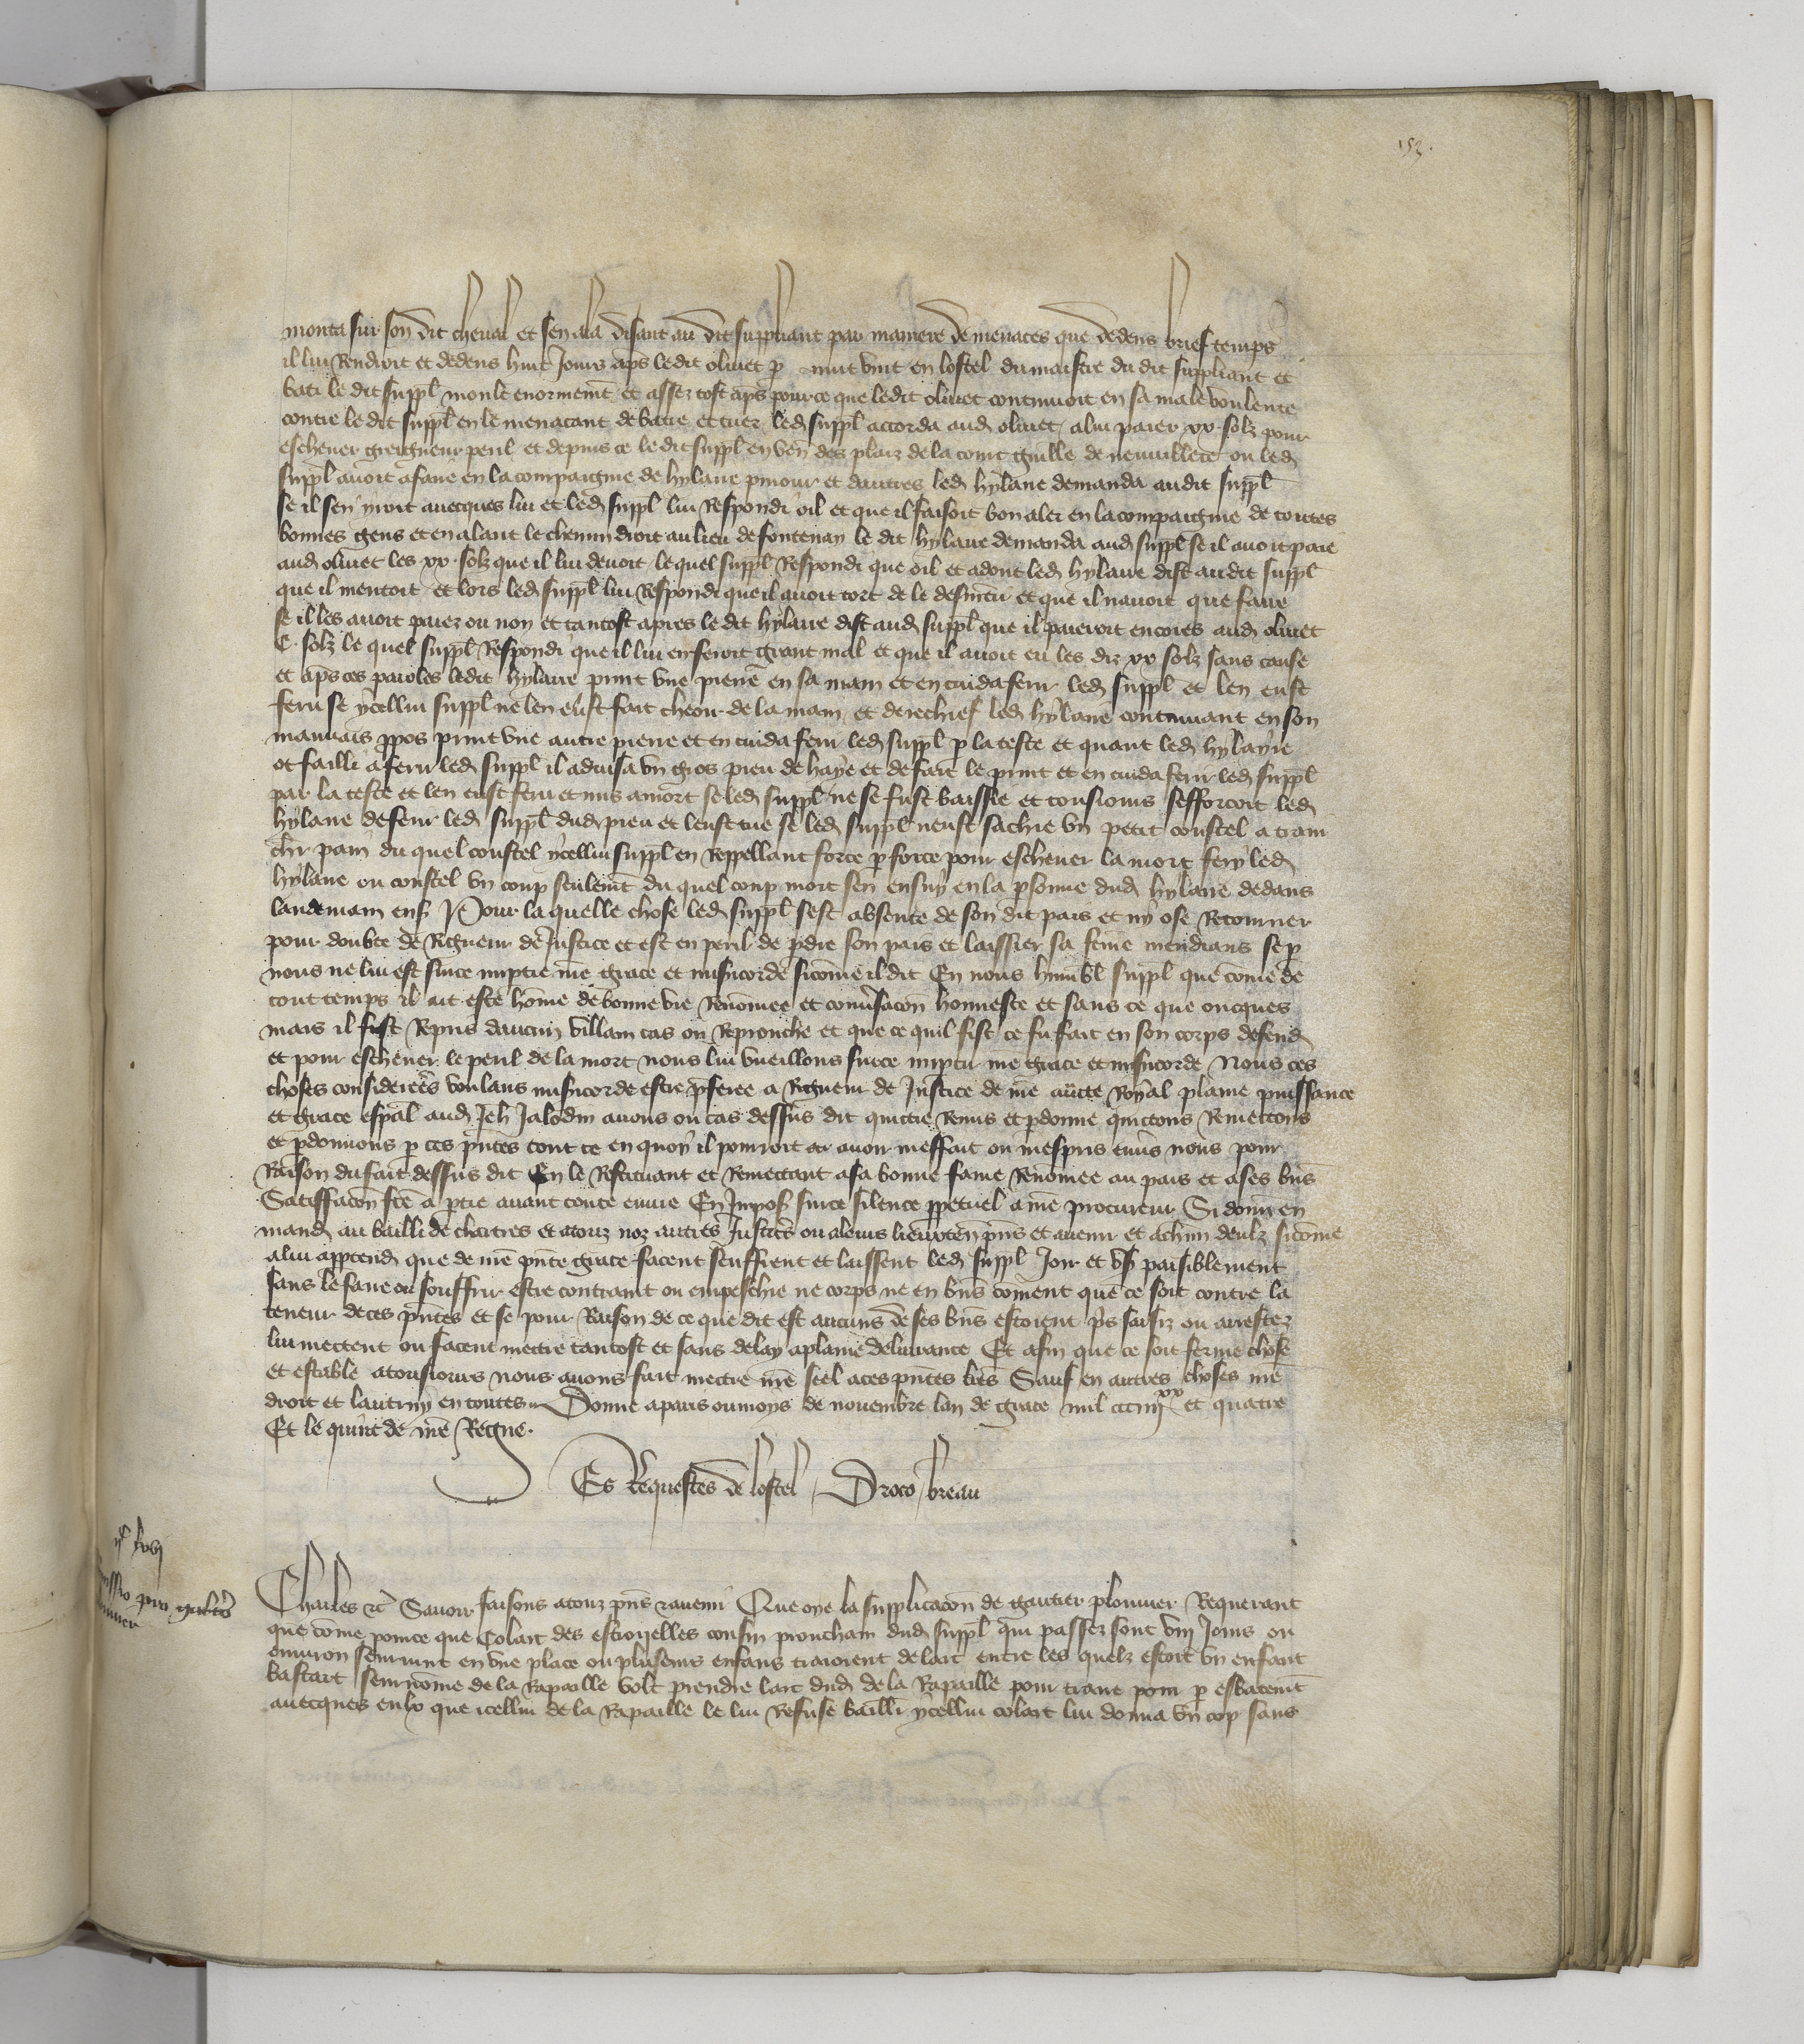 153.
monta sur son dit cheval et sen ala disant au dit suppliant par maniere de menaces que dedens brief temps
il lui Rendroit et dedens huit Jours ap̄s ledit olivet p nuit vint en lostel du maistre du dit suppliant et
bati le dit suppl̄ moult enormemēt et assez tost ap̄s pour ce que ledit olivet continuoit en sa male voulente
contre le dit suppl̄ en le menacant de batre et tuer led suppl̄ accorda aud olivet alui paier xx solz pour
eschever greigneur peril et depuis ce le dit suppl̄ en ven des plaiz de la court guille de nevuillete ou led
suppl̄ avoit afaire en la compaignie de hylaire pmour et dautres led hylaire demanda audit suppl̄
se il sen yroit avecques lui et led suppl̄ lui Respondi oil et que il faisoit bon aler en la compaignie de toutes
bonnes gens et en alant le chemin droit au lieu de fontenay le dit hylaire demanda aud suppl̄ se il avoit paie
aud olivet les xx solz que il lui devoit lequel suppl̄ Respondi que oil et adont led hylaire dist audit suppl̄
que il mentoit et lors led suppl̄ lui Respondi que il avoit tort de le desmētir et que il navoit que faire
se il les avoit paiez ou non et tantost apres le dit hylaire dist aud suppl̄ que il paieroit encores aud olivet
C solz le quel suppl̄ Respondi que il lui en feroit grant mal et que il avoit eu les diz xx solz sans cause
et ap̄s ces paroles ledit hylaire print une pierre en sa main et en cuida ferir led suppl̄ et len eust
feru se ycellui suppl̄ ne len eust fait cheoir de la main et derechief led hylaire continuant en son
mauvais ppos print une autre pierre et en cuida ferir led suppl̄ p la teste et quant led hylayre
ot failli a ferir led suppl̄ il advisa un gros pieu de haye et de fait le print et en cuida ferir led suppl̄
par la teste et len eust feru et mis amort se led suppl̄ ne se fust baissie et tousiours sefforcoit led
hylaire deferir led suppl̄ dud pieu et leust tue se led suppl̄ neust sachie un petit coustel a tran
chr pain du quel coustel ycellui suppl̄ en Reppellant force p force pour eschever la mort fery led
hylaire ou coustel un coup seulemt du quel coup mort sen ensuy en la psonne dud hylaire dedans
landemain ens Pour la quelle chose led suppl̄ sest absente de son dit pais et ny ose Retourner
pour doubte de Rigueur de Justice et est en peril de pdre son pais et laissier sa fem̄e mendians se p
nous ne lui est sur ce imptie nre grace et misicorde sicom̄e il dit En nous humbl suppl̄ que com̄e de
tout temps il ait este hom̄e de bonne vie Renom̄ee et conv̄sacōn honneste et sans ce que oncques
mais il fust Repris daucun villain cas ou Reprouche et que ce quil fist ce fu fait en son corps defend
et pour eschever le peril de la mort nous lui vueillons sur ce imptir nre grace et misicorde Nous ces
choses considerees voulans misicorde estre pferee a Rigueur de Justice de nre aucte Royal plaine puissance
et grace esp̄al aud Jeh Jalodin avons ou cas dessus dit quittie Remis et pdonne quictons Remettons
et pdonnons p ces pntes tout ce en quoy il pourroit avoir meffait ou mespris env̄s nous pour
Raison du fait dessus dit En le Restituant et Remettant asa bonne fame Renom̄ee au pais et ases bn̄s
Satisfacōn fcē a ptie avant toute euvre En Impos sur ce silence ppetuel a nre procureur Si donn en
mand au bailli de chartres et atouz noz autres Justics ou aleurs lieuxten pn̄s et avenir et achun deulz sicom̄e
alui apptend que de nre pn̄te grace facent seuffrent et laissent led suppl̄ Joir et us̄ paisiblement
sans le faire ou souffrir estre contraint ou empeschie ne corps ne en bn̄s com̄ent que ce soit contre la
teneur de ces pn̄tes et se pour Raison de ce que dit est aucuns de ses bn̄s estoient p̄s saisiz ou arrestez
lui mettent ou facent mettre tantost et sans delay aplaine delivrance Et afin que ce soit ferme chose
et estable atousiours nous avons fait mettre nre seel aces pn̄tes lrēs Sauf en autres choses nre
droit et lautruy en toutes Donne aparis ou moys de novembre lan de grace mil ccciiij xx et quatre
Et le quint de nre Regne.
Es Requestes de lostel Droco breau
ij lxvj
missio pro galtero
plouvier
Charles etc Savoir faisons atouz pn̄s ravenir Que oye la supplicacōn de gautier plouvier Requerant
que com̄e pource que Colart des estroyelles cousin prouchain dud suppl̄ qui passez sont viij Jours ou
environ seurvint en une place ou pluseurs enfans traioient de larc entre les quelz estoit un enfant
bastart seurnom̄e de la Rapaille volt prendre larc dud de la Rapaille pour traire pour p esbatemt
avecques eulx que icellui de la Rapaille le lui Refuse bailli ycellui colart lui donna un cop sans